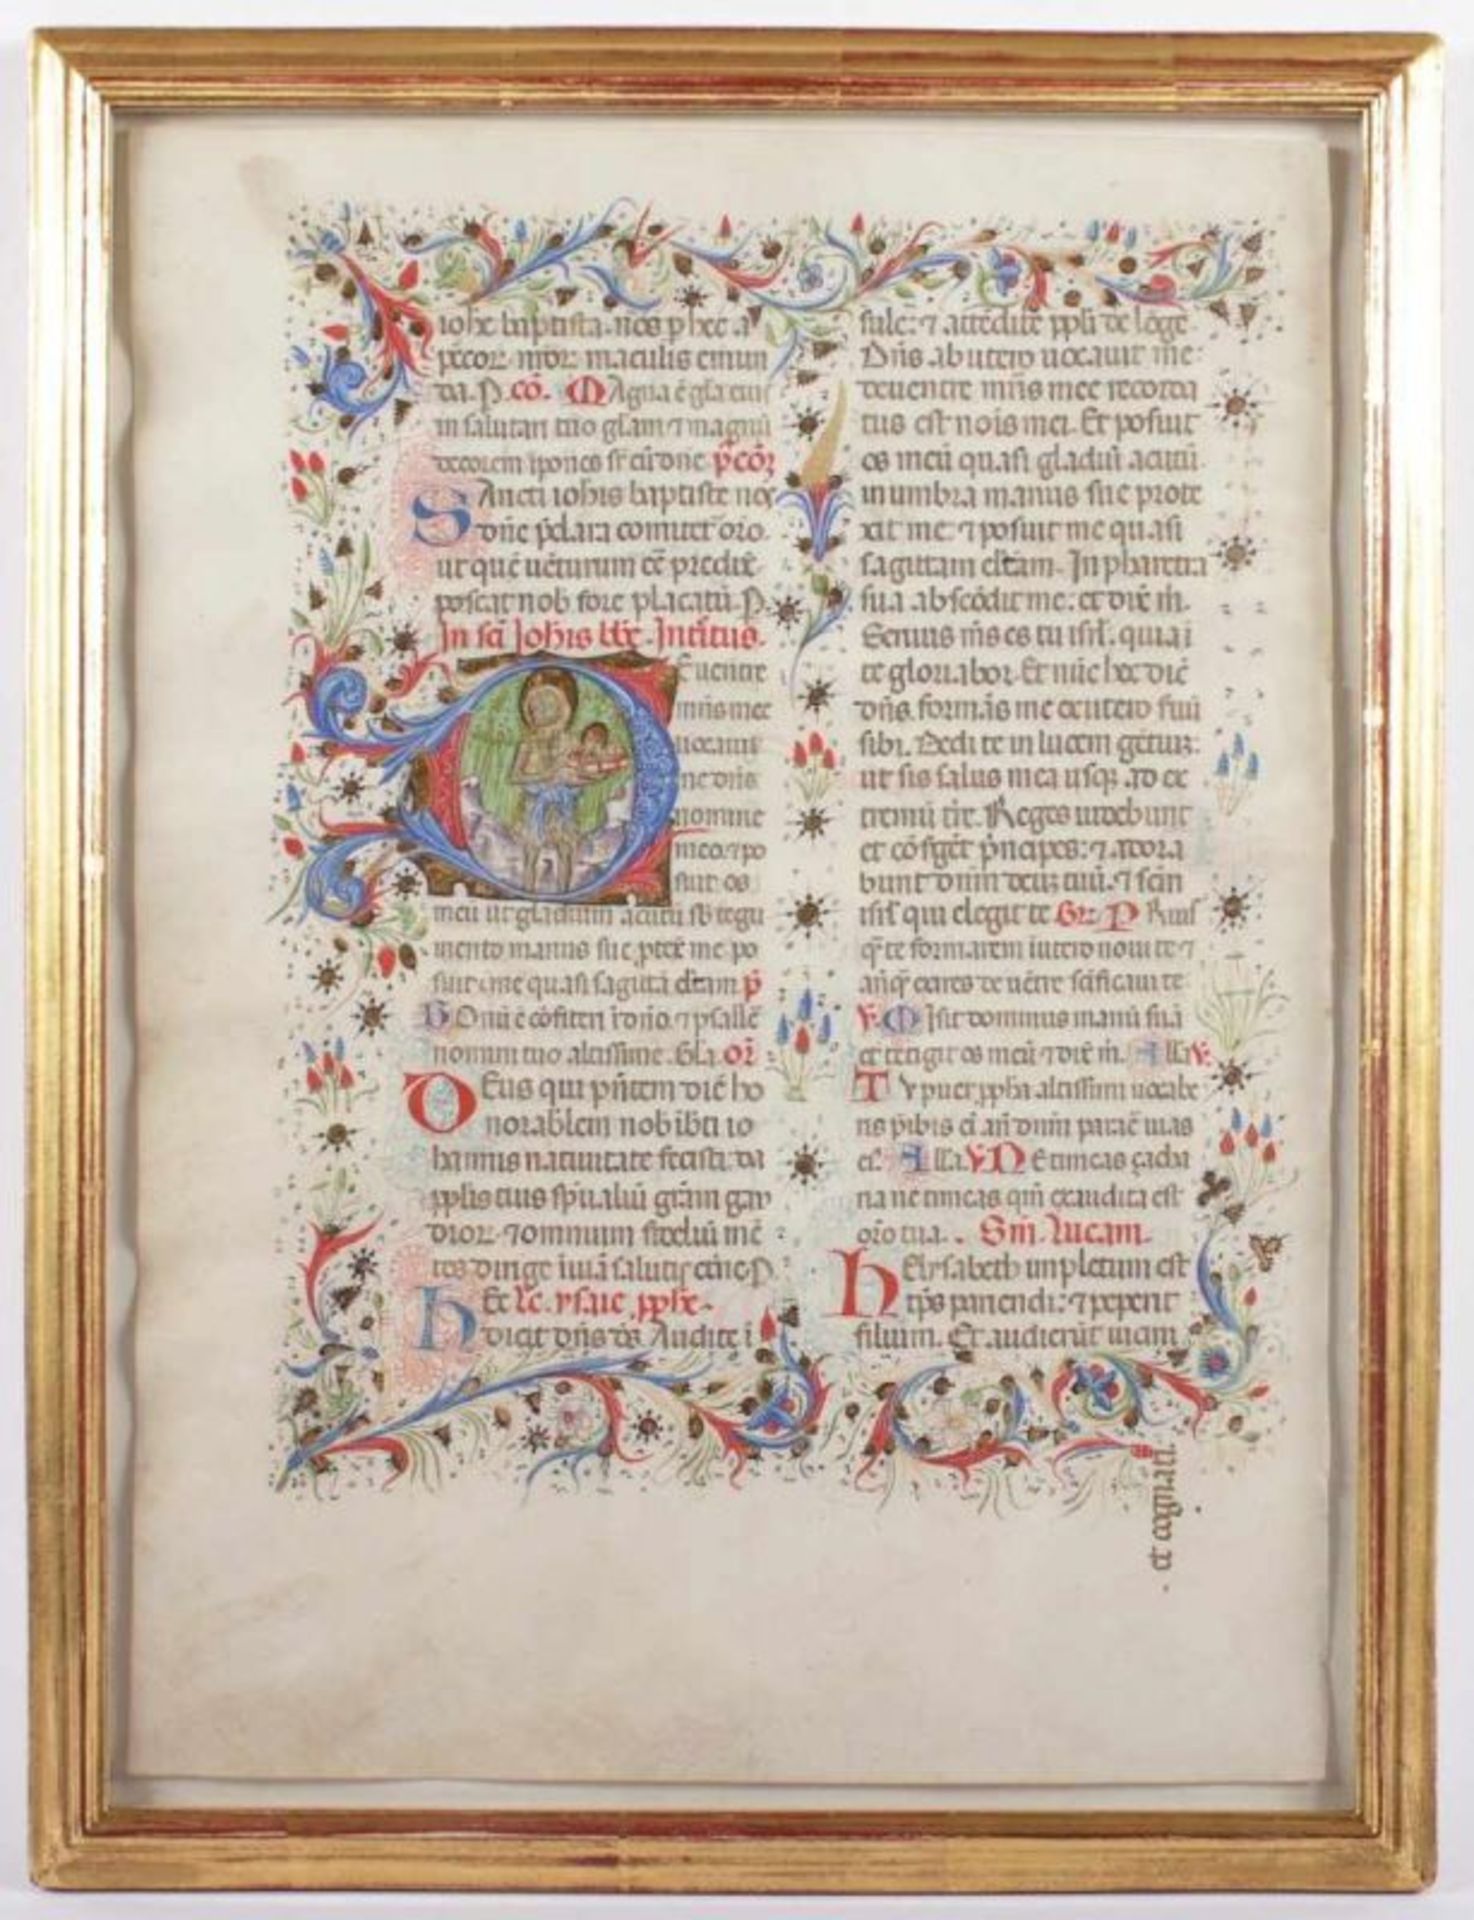 iohe baptista. nos phec. a
pēcor. mōr. maculis emun
da. P. cō. MAgna ē gla eius
in salutari tuo glam ⁊ magnū
decorem īpones sr eū dne p̄cōꝛ
SAncti iohis baptiste nos
dn̄e p̄clara comitet̄ oro.
ut quē uēturum eē predix̄
poscat nob fore placatū. P.
In sc̄i Johis bt̄e. Intrōitus.
E uentre
mr̄is mee
uocauit
me dn̄s
nomine
meo. ⁊ po
suit os
meū ut gladium acutū sb tegu
mento manus sue ptex̄ me po
suit me quasi sagittā elctam p̄
BOnū ē cōfiteri īdn̄o. ⁊ psallē
nomini tuo altissime. Gl̄a or̄
DEus qui pn̄tem diē ho
norablem nob ībti io
hannis natiuitate fecisti. da
pp̄lis tuis sp̄ualiū gr̄am gau
dior. ⁊ omnium fideliū mē
tes dirige ī uiā salutis et̄ne P.
hEc lc̄. ysaie pph̄e.
dicit dn̄s ds̄ Audite ī
sule: ⁊ attēdite pp̄li de lōge
Dn̄s ab utero uocauit me:
de uentre mr̄is mee recorda
tus est nōis mei. Et posuit
os meū quasi gladiū acutū.
in umbra manus sue prote
xit me: ⁊ posuit me quasi
sagittam elctam. In pharetra
sua abscōdit me: et dix̄ m̄.
Seruus ms̄ es tu isrl̄. quia ī
te gloriabor. Et nūc hec dic̄
dn̄s. formās me ex utero suū
sibi. Dedi te in lucem gētiū:
ut sis salus mea usqꝫ ad ex
tremū tr̄e. Reges uidebunt
et cōsḡet p̄ncipes: ⁊ adora
bunt dn̄m deuꝫ tuū. ⁊ scm̄
isrl̄ qui elegit te Gr: PRius
q̄ te formarem ī utero noui te ⁊
anq̄ exires de uētre scīficaui te
V. MIsit dominus manū suā
et tetigit os meū ⁊ dix̄ m̄. Alla V:
TV puer pph̄a altissimi uocabe
ris p̄ibis ei an̄ dn̄m parar̄e uias
ei.̄ Alla. V. NE timeas çacha
ria ne timeas qm̄ exaudita est
orō tua. Sm̄. Lucam.
hElysabeth impletum est
tp̄s pariendi: ⁊ peperit
filium. Et audierūt uicini
et cognati.